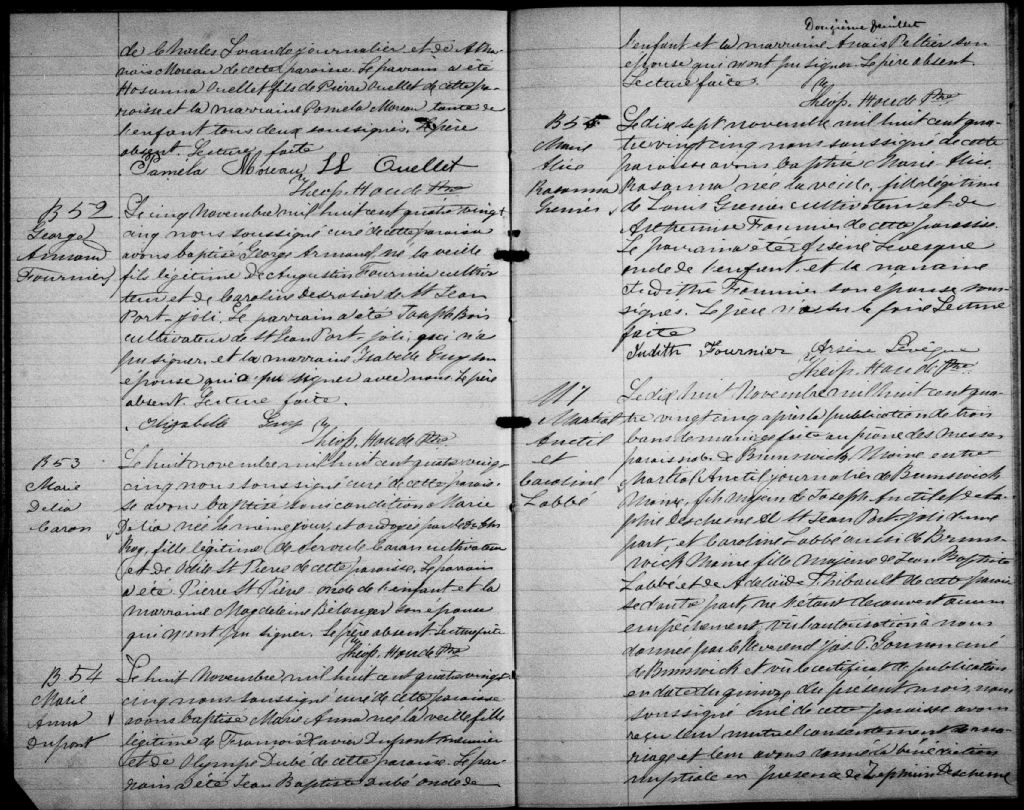 de Charles Lorand journalier et de Atha-
naïs Moreau de cette paroisse. Le parrain a été
Hosanna Ouellet fils de Pierre Ouellet de cette pa-
roisse et la marraine Pamela Moreau tante de
l'enfant tous deux soussignés. Le père
absent. Lecture faite
Pamela Moreau Ouellet
Théop. Houde Ptre
B 52
George
Armand
Fournier
Le cinq Novembre mil huit cent quatre vingt
cinq nous soussigné curé de cette paroisse
avons baptisé Georges Armand, né la veille
fils légitime D'Augustin Fournier cultiva-
teur et de Caroline Desrosier de St Jean
Port-Joli. Le parrain a été Joseph Bois
cultivateur de St Jean Port-Joli, qui n'a
pu signer, et la marraine Isabelle Guy son
épouse qui a pu signer avec nous. Le père
absent. Lecture faite.
Elizabelle Guy
Théop. Houde Ptre
B 53
Marie
Delia
Caron
Le huit novembre mil huit cent quatre vingt
cinq nous soussigné curé de cette parois-
se avons baptisé sous condition Marie
Delia née le même jour, et ondoyée par le
Roy, fille légitime de Caron cultivateur
et de Odile St Pierre de cette paroisse. Le parrain
a été Pierre St Pierre oncle de l'enfant et la
marraine Magdeleine Bélanger son épouse
qui n'ont pu signer. Le père absent. Lecture faite
Théop. Houde Ptre
B 54
Marie
Anna
Dupont
Le huit Novembre mil huit cent quatre vingt
cinq nous soussigné curé de cette paroisse
avons baptisé Marie Anna née la veille fille
légitime de François Xavier Dupont meunier
et de Olympe Dubé de cette paroisse. Le par-
rain a été Jean Baptiste Dubé oncle de
Douzième feuillet
l'enfant et la marraine Anaïs Peltier son
épouse qui n'ont pu signer. Le père absent.
Lecture faite.
Théop. Houde Ptre
B 55
Marie
Alice
Rosanna
Grenier
Le dix sept novembre mil huit cent qua-
tre vingt cinq nous soussigné de cette
paroisse avons baptisé Marie Alice
Rosanna née la veille, fille légitime
de Louis Grenier cultivateur et de
Fournier de cette paroisse.
Le parrain a été Arsène Levesque
oncle de l'enfant et la marraine
Judithe Fournier son épouse sous-
signés. Le père n'a su le faire Lecture
faite
Judith Fournier Arsène Lévêque
Théop. Houde Ptre
M 7
Martial
Anctil
et
Caroline
Labbé
Le dix huit Novembre mil huit cent qua-
tre vingt cinq après la publication de trois
bans de mariage faite au prône des messes
paroissiales de Brunswick, Maine entre
Martial Anctil journalier de Brunswick
Maine, fils majeur de Joseph Anctil et de Sa-
phie Deschesne de St Jean Port-Joli d'une
part, et Caroline Labbé aussi de Bruns-
wick Maine fille majeure de Jean Baptiste
Labbé et de Adelaide Thibault de cette parois-
se d'autre part, ne s'étant découvert aucun
empêchement, vu l'autorisation à nous
donnée par le Révérend Jos. P. Gorman curé
de Brunswick et vu le certificat de publication
en date du quinze du présent mois, nous
soussigné curé de cette paroisse avons
reçu leur mutuel consentement de ma-
riage et leur avons donné la bénédiction
nuptiale en présence de Zephirin Deschesne